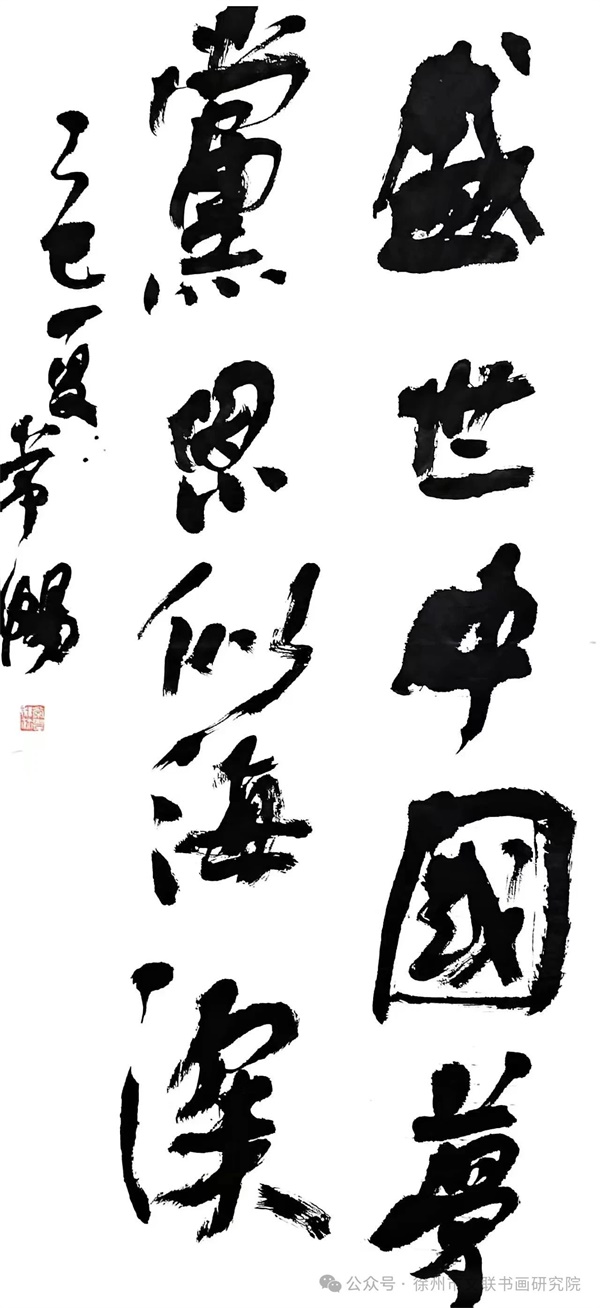 盛世中國夢
黨恩似海深
乙巳夏
常暢
公众号·徐州市文联书画研究院